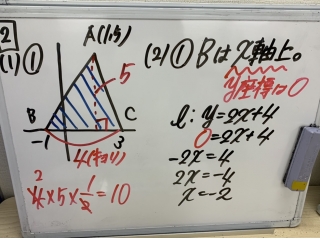 2
(1) ①
A(1,5)
5
B
C
-1
3
4(キョリ)
2
4×5×1/2=10
(2)① Bはx軸上。
y座標は0
l: y=2x+4
0=2x+4
-2x=4
2x=-4
x=-2